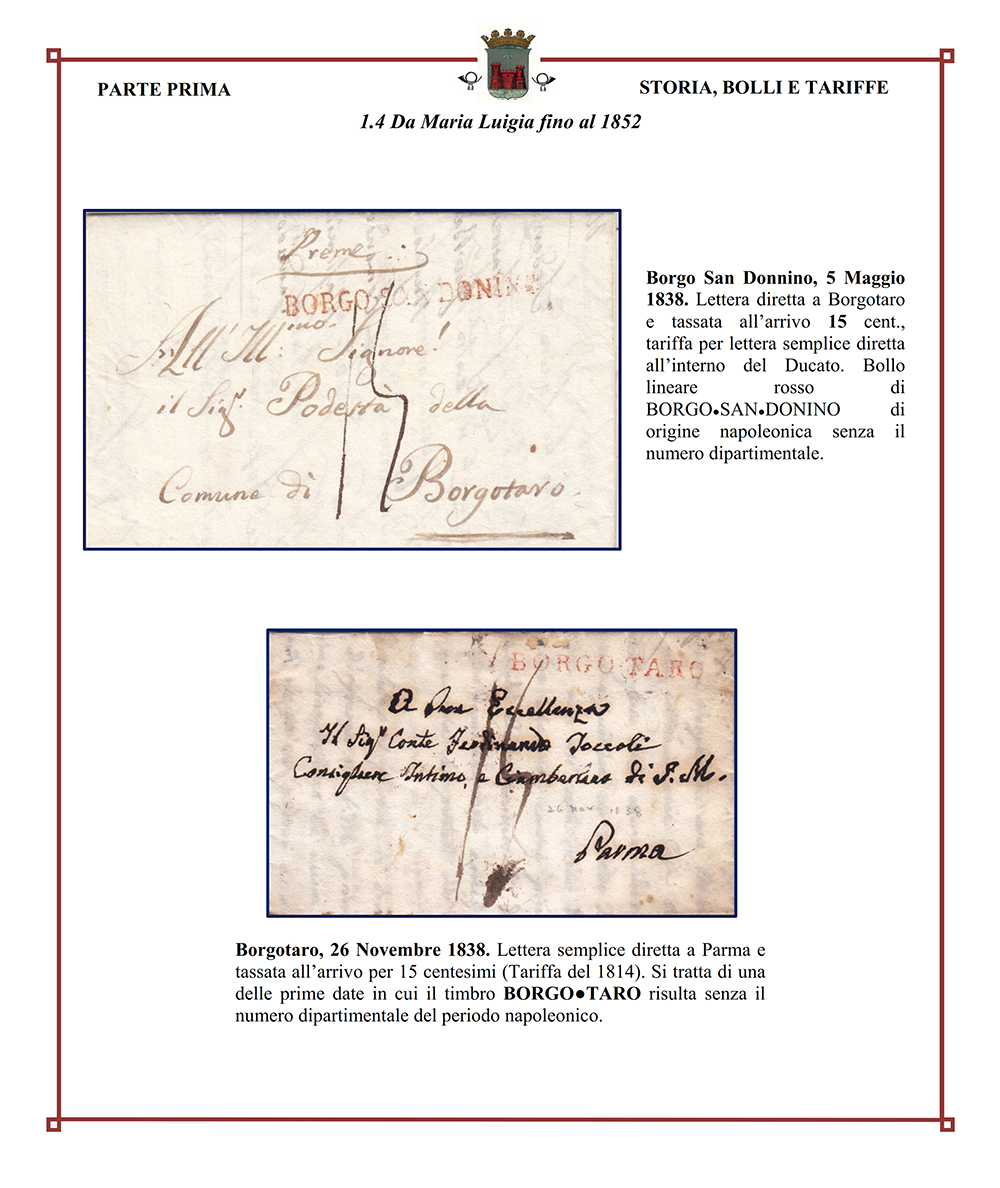 PARTE PRIMA
STORIA, BOLLI E TARIFFE
1.4 Da Maria Luigia fino al 1852
Preme
BORGO SAN DONINO
All' Ill:mo Signore!
il Sigr. Podestà della
Comune di Borgotaro.
15
Borgo San Donnino, 5 Maggio
1838. Lettera diretta a Borgotaro
e tassata all’arrivo 15 cent.,
tariffa per lettera semplice diretta
all’interno del Ducato. Bollo
lineare rosso di
BORGO●SAN●DONINO di
origine napoleonica senza il
numero dipartimentale.
BORGO·TARO
A Sua Eccellenza
Il Sigr Conte Ferdinando Toccoli
Consigliere Intimo, e Ciamberlano di S. M.
26 Nov 1838
Parma
15
Borgotaro, 26 Novembre 1838. Lettera semplice diretta a Parma e
tassata all’arrivo per 15 centesimi (Tariffa del 1814). Si tratta di una
delle prime date in cui il timbro BORGO●TARO risulta senza il
numero dipartimentale del periodo napoleonico.